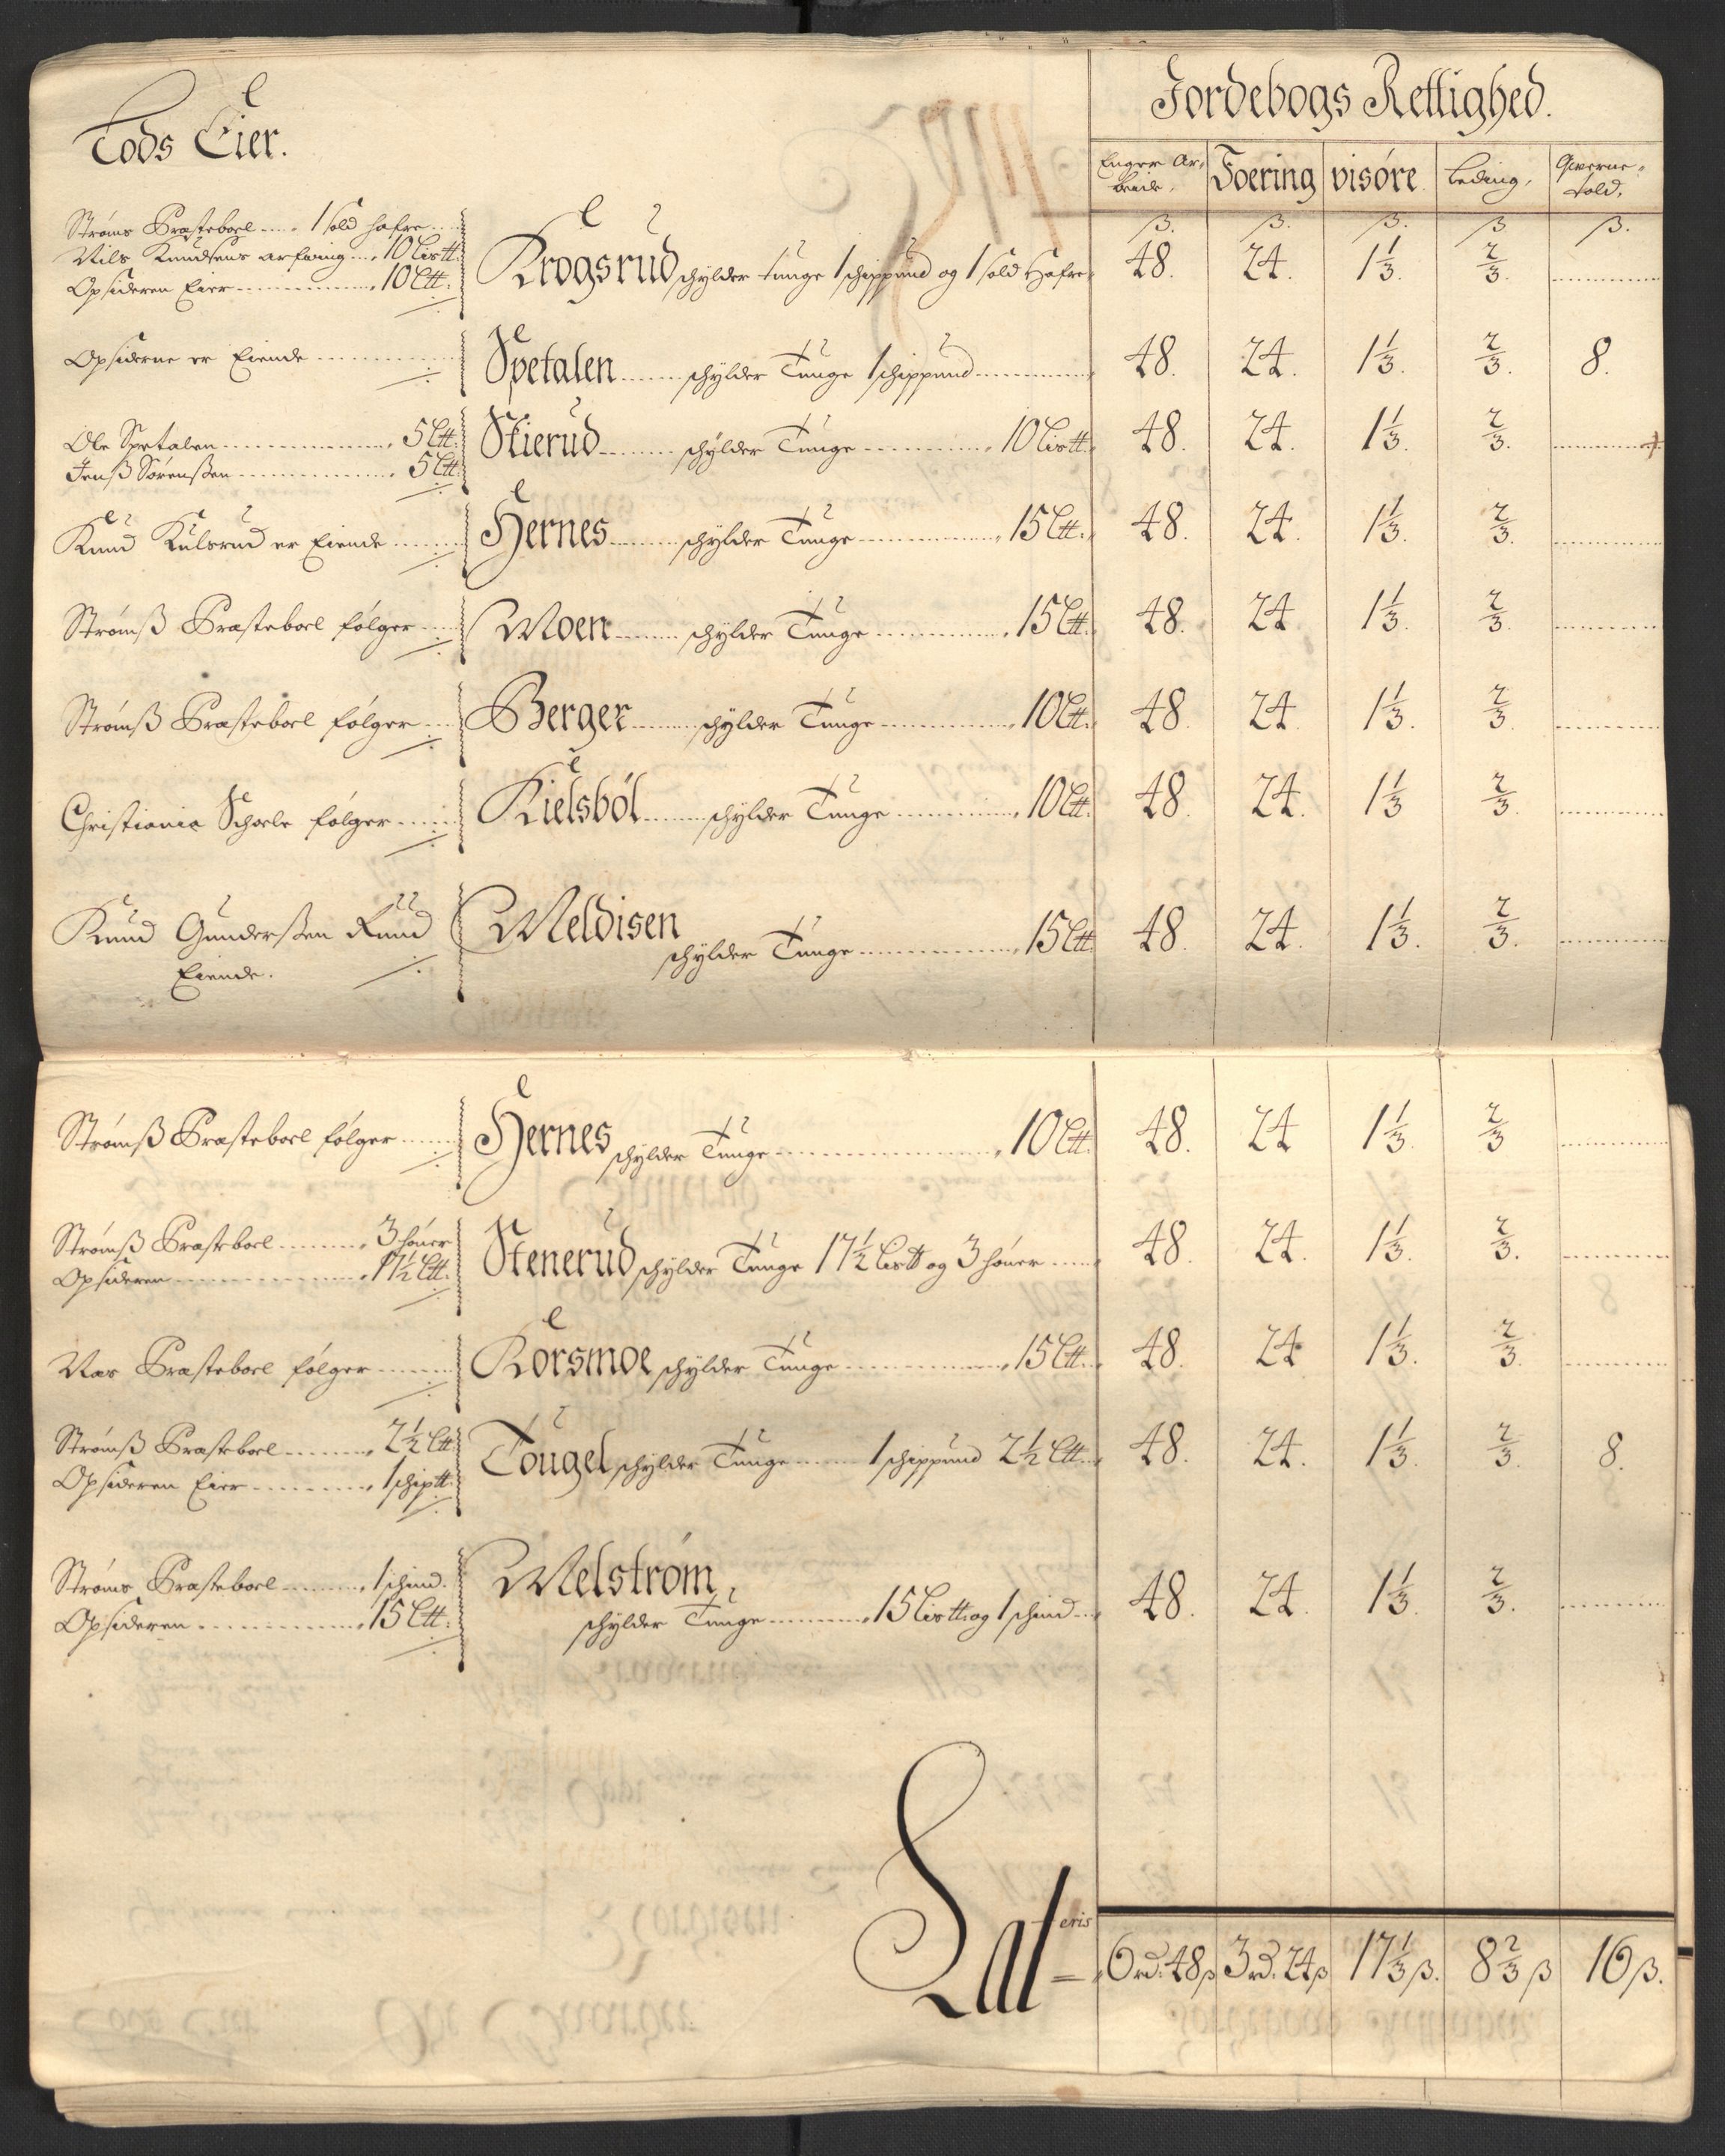 Lods Eier.
Jordebogs Rettighed.
Enger Ar-
beide.
Foering
visøre
Leding,
Qverne-
told.
ß. ß. ß. ß ß.
Strøms Præsteboel .... 1 sold hafre ...
Nils Knudsens arfving ... 10 Listt.
Opsideren Eier ............ 10 Ltt.
Krogsrud schylder tunge 1 schippund og 1 sold Hafre. 48. 24. 1 1/3. 2/3. ............
Opsiderne er Eiende ............
Spetalen ...... schylder Tunge 1 schippund ............ 48. 24. 1 1/3. 2/3. 8.
Ole Spetalen ............ 5 Ltt.
Jenß Sørenßen ............ 5 Ltt.
Skierud ...... schylder Tunge ............ 10 Listt. 48. 24. 1 1/3. 2/3. ............
Knud Kulsrud er Eiende ......
Hernes ...... schylder Tunge ............ 15 Ltt. 48. 24. 1 1/3. 2/3. ............
Strømß Præsteboel følger ....
Moen ...... schylder Tunge ............ 15 Ltt. 48. 24 1 1/3. 2/3. ............
Strømß Præsteboel følger ...
Berger ...... schylder Tunge ............ 10 Ltt. 48 24. 1 1/3. 2/3. ............
Christiania Schoele følger ......
Kielsböl ...... schylder Tunge ............ 10 Ltt. 48 24. 1 1/3 2/3. ............
Knud Gunderßen Ruud
Eiende.
Meldisen
schylder Tunge ............ 15 Ltt 48. 24. 1 1/3. 2/3. ............
Strømß Præsteboel følger ......
Hernes schylder Tunge ............ 10 Ltt. 48. 24 1 1/3. 2/3 ............
Strømß Præsteboel ......... 3 høner
Opsideren ............ 17 1/2 Ltt.
Stenerud schylder Tunge 17 1/2 Listt og 3 høner ...... 48. 24. 1 1/3. 2/3. ............
Næs Præsteboel følger ......
Korsmoe schylder Tunge ............ 15 Ltt. 48. 24 1 1/3. 2/3. ............
Strømß Præsteboel ......... 2 1/2 Ltt
Opsideren Eier ............ 1 schiptt.
Tougel schylder Tunge ...... 1 schippund 2 1/2 Ltt. 48. 24. 1 1/3. 2/3. 8.
Strøms Præsteboel ......... 1 schind.
Opsideren ............ 15 Ltt.
Melstrøm,
schylder Tunge ......... 15 Listt. og 1 schind ... 48. 24. 1 1/3 2/3. ............
Lateris = 6 rd. 48 ß 3 rd. 24 ß 17 1/3 ß. 8 2/3 ß 16 ß.